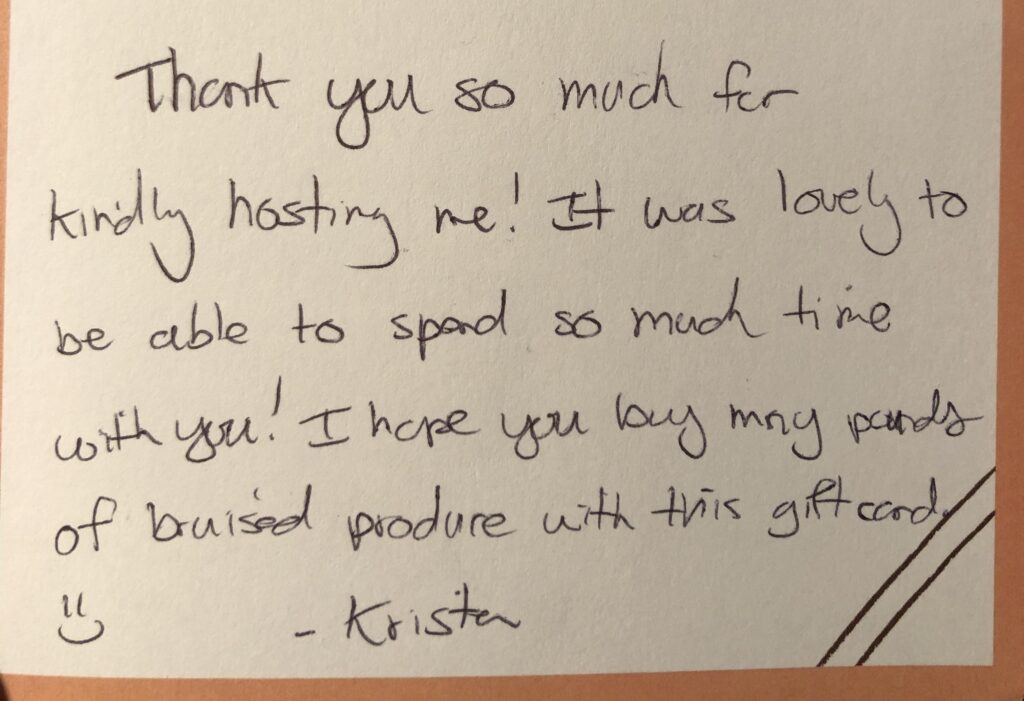 Thank you so much for
kindly hosting me! It was lovely to
be able to spend so much time
with you! I hope you buy many pounds
of bruised produce with this gift card.
- Kristen